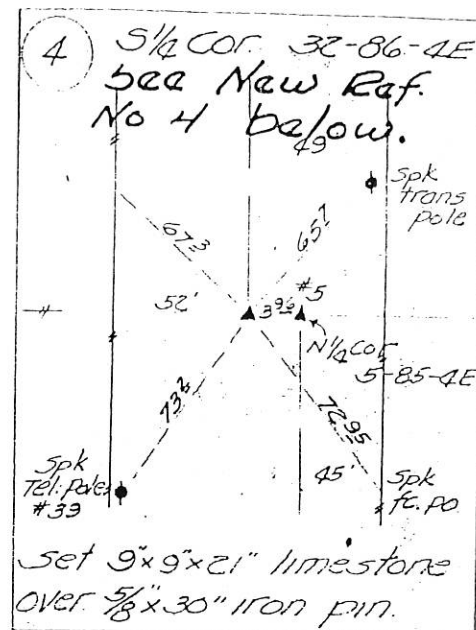 4
S 1/4 Cor. 32-86-4E
See New Ref.
No 4 below.
49
Spk
trans
pole
67.3
65.7
52'
3.96
#5
N 1/4 Cor
5-85-4E
73.2
72.95
45'
Spk
Tel. Pole
#39
Spk
fc. po
Set 9"x9"x21" limestone
over 5/8"x30" iron pin.